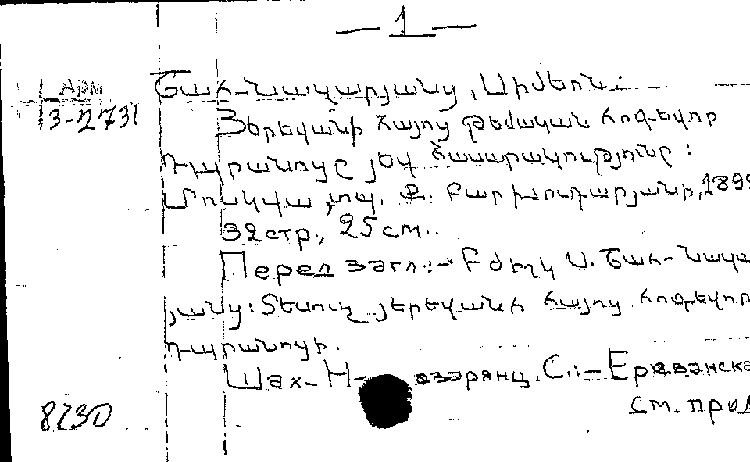 1
Арм
3-2731
Շահ-Նազարյանց, Սիմեոն.
Յերեվանի հայոց թեմական հոգեվոր
դպրանոցը յեվ հասարակությունը:
Մոսկվա, տպ. Բարխուդարյանի, 1899
32стр., 25см.
Перед загл.:— Բժիշկ Ս. Շահ-Նազա
յանց: Տեսուչ յերեվանի հայոց հոգեվոր
դպրանոցի.
Шах-Н азарянц, С.:— Ереванска
см. прод
8230